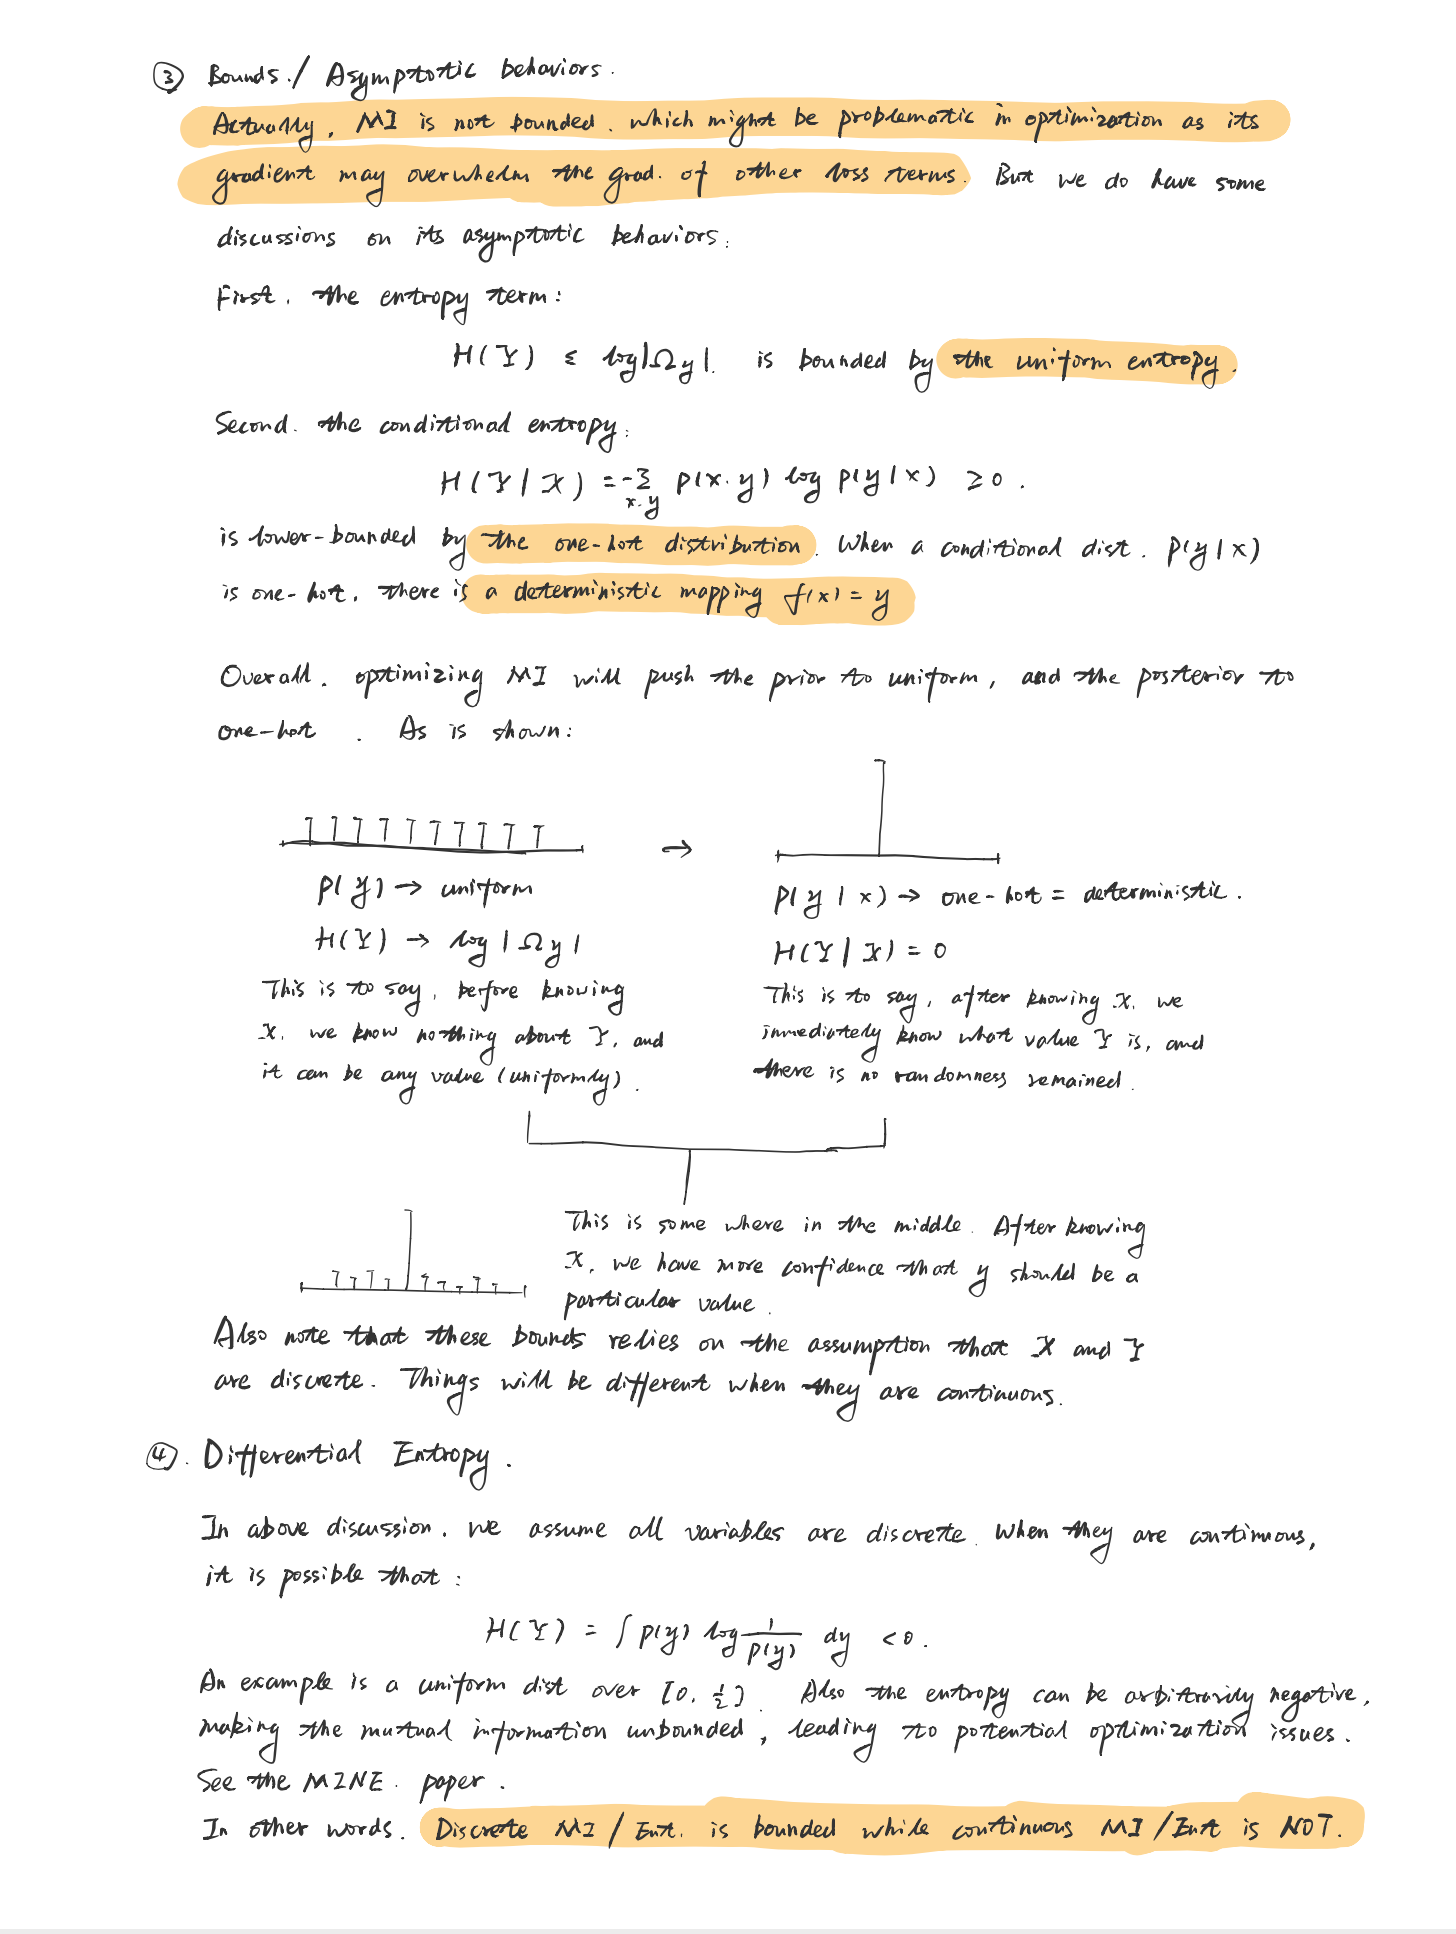 ③ Bounds. / Asymptotic behaviors.
Actually, MI is not bounded. which might be problematic in optimization as its
gradient may overwhelm the grad. of other loss terms. But we do have some
discussions on its asymptotic behaviors.
First. the entropy term:
H(Y) ≤ log|Ωy|. is bounded by the uniform entropy.
Second. the conditional entropy:
H(Y|X) = -Σ p(x.y) log p(y|x) ≥ 0.
x.y
is lower-bounded by the one-hot distribution. When a conditional dist. p(y|x)
is one-hot. there is a deterministic mapping f(x) = y
Overall. optimizing MI will push the prior to uniform, and the posterior to
one-hot. As is shown:
→
P(y) → uniform
P(y|x) → one-hot = deterministic.
H(Y) → log|Ωy|
H(Y|X) = 0
This is to say, before knowing
X. we know nothing about Y, and
it can be any value (uniformly).
This is to say, after knowing X. we
immediately know what value Y is, and
there is no randomness remained.
This is some where in the middle. After knowing
X, we have more confidence that y should be a
particular value.
Also note that these bounds relies on the assumption that X and Y
are discrete. Things will be different when they are continuous.
④. Differential Entropy.
In above discussion, we assume all variables are discrete. When they are continuous,
it is possible that:
H(Y) = ∫ p(y) log 1/p(y) dy < 0.
An example is a uniform dist over [0, ½]. Also the entropy can be arbitrarily negative,
making the mutual information unbounded, leading to potential optimization issues.
See the MINE. paper.
In other words. Discrete MI / Ent. is bounded while continuous MI / Ent is NOT.